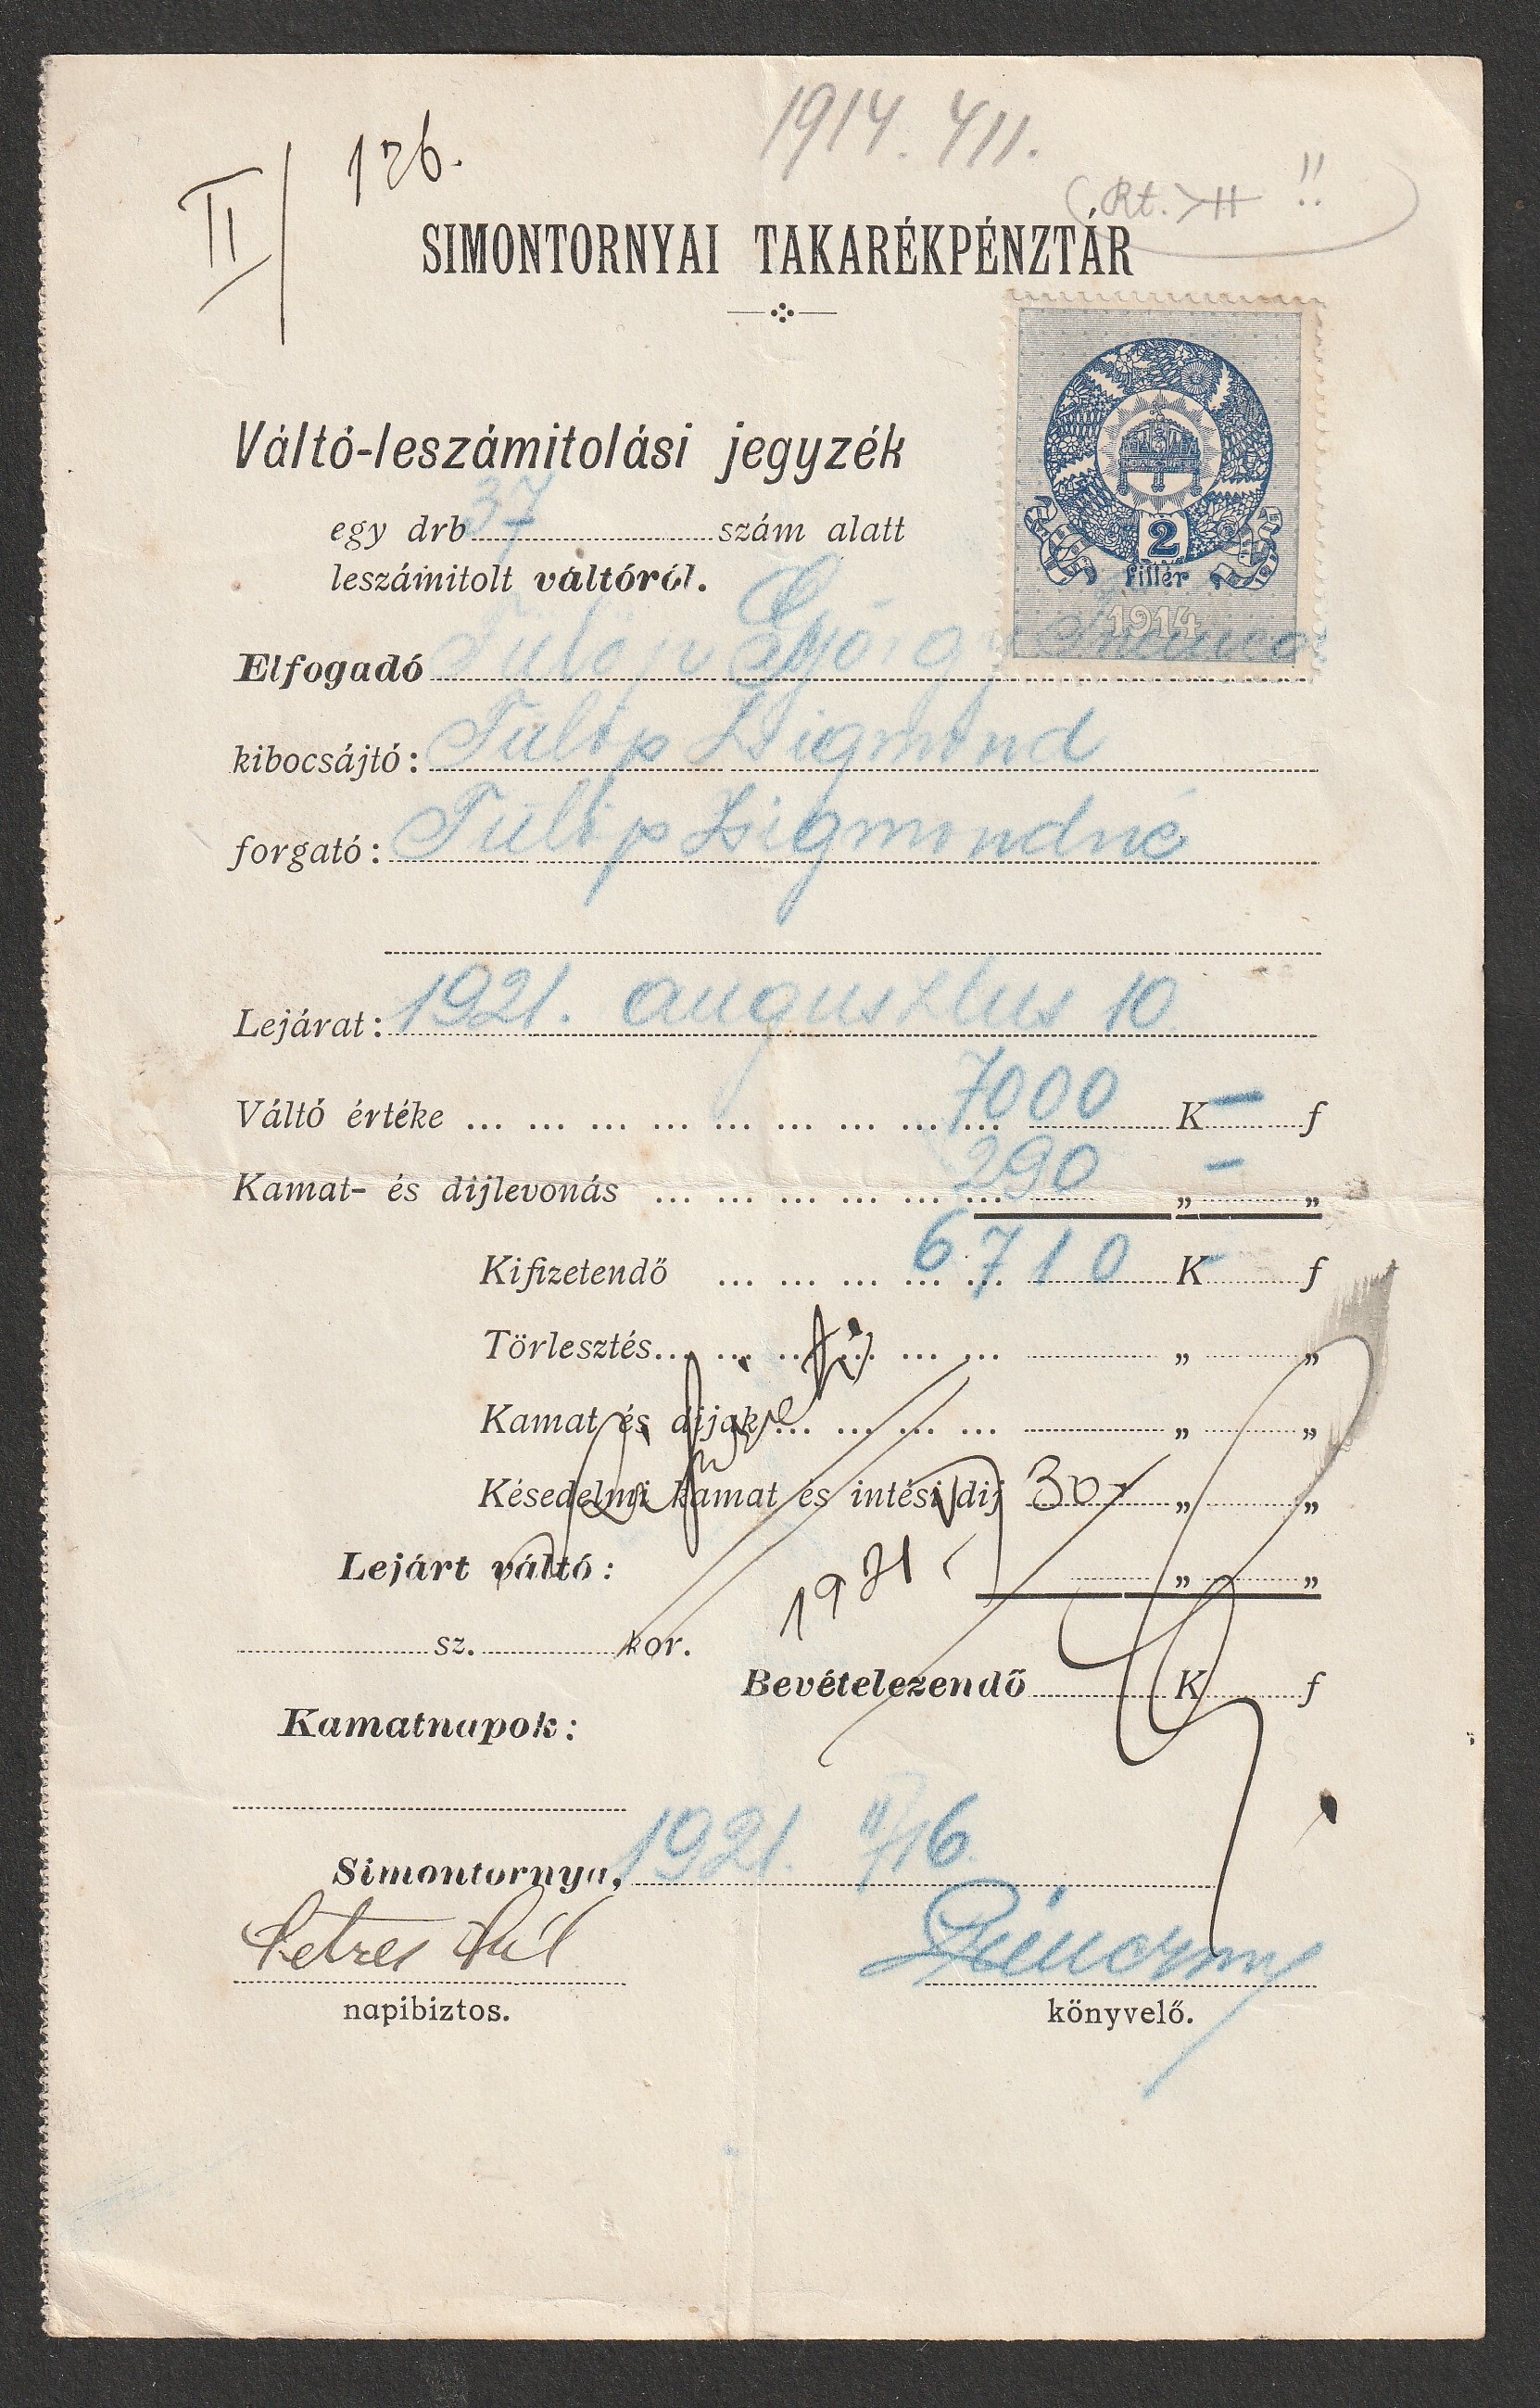 1914. 411.
II/ 126.
(Rt. !!)
SIMONTORNYAI TAKARÉKPÉNZTÁR
Váltó-leszámitolási jegyzék
egy drb 37 szám alatt
leszámitolt váltóról.
2
fillér
1914
Elfogadó Fülöp György
kibocsájtó: Fülöp Zsigmond
forgató: Fülöp Zsigmondné
Lejárat: 1921. augusztus 10
Váltó értéke ... ... ... ... ... ... ... ... ... 7000 K — f
Kamat- és dijlevonás ... ... ... ... ... ... 290 „ — „
Kifizetendő ... ... ... ... ... 6710 K - f
Törlesztés... ... ... ... ... ... „ „
Kamat és dijak ... ... ... ... „ „
Késedelmi kamat és intési dij 30 „ „
Lejárt váltó: „ „
1921
sz. kor.
Bevételezendő K f
Kamatnapok:
Simontornya, 1921. II/16.
napibiztos. könyvelő.